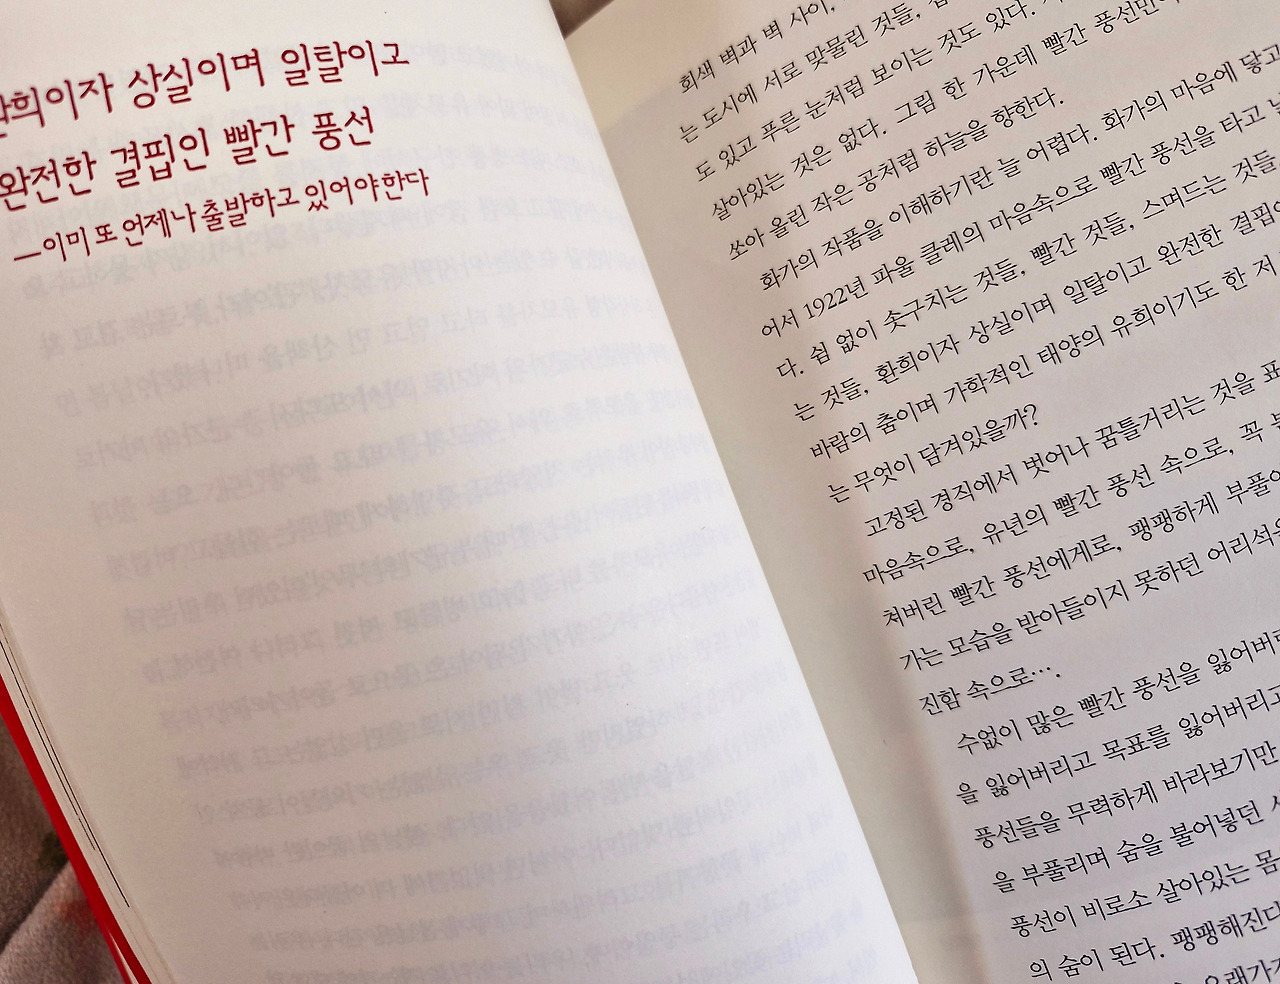 환희이자 상실이며 일탈이고
완전한 결핍인 빨간 풍선
—이미 또 언제나 출발하고 있어야 한다
회색 벽과 벽 사이,
는 도시에 서로 맞물린 것들,
도 있고 푸른 눈처럼 보이는 것도 있다.
살아있는 것은 없다. 그림 한 가운데 빨간 풍선만이
쏘아 올린 작은 공처럼 하늘을 향한다.
화가의 작품을 이해하기란 늘 어렵다. 화가의 마음에 닿고
어서 1922년 파울 클레의 마음속으로 빨간 풍선을 타고
다. 쉼 없이 솟구치는 것들, 빨간 것들, 스며드는 것들
는 것들, 환희이자 상실이며 일탈이고 완전한 결핍이
바람의 춤이며 가학적인 태양의 유희이기도 한 저
는 무엇이 담겨있을까?
고정된 경직에서 벗어나 꿈틀거리는 것을 표
마음속으로, 유년의 빨간 풍선 속으로, 꼭
쳐버린 빨간 풍선에게로, 팽팽하게 부풀어
가는 모습을 받아들이지 못하던 어리석음
진함 속으로….
수없이 많은 빨간 풍선을 잃어버
을 잃어버리고 목표를 잃어버리고
풍선들을 무력하게 바라보기만
을 부풀리며 숨을 불어넣던
풍선이 비로소 살아있는 몸
의 숨이 된다. 팽팽해진다